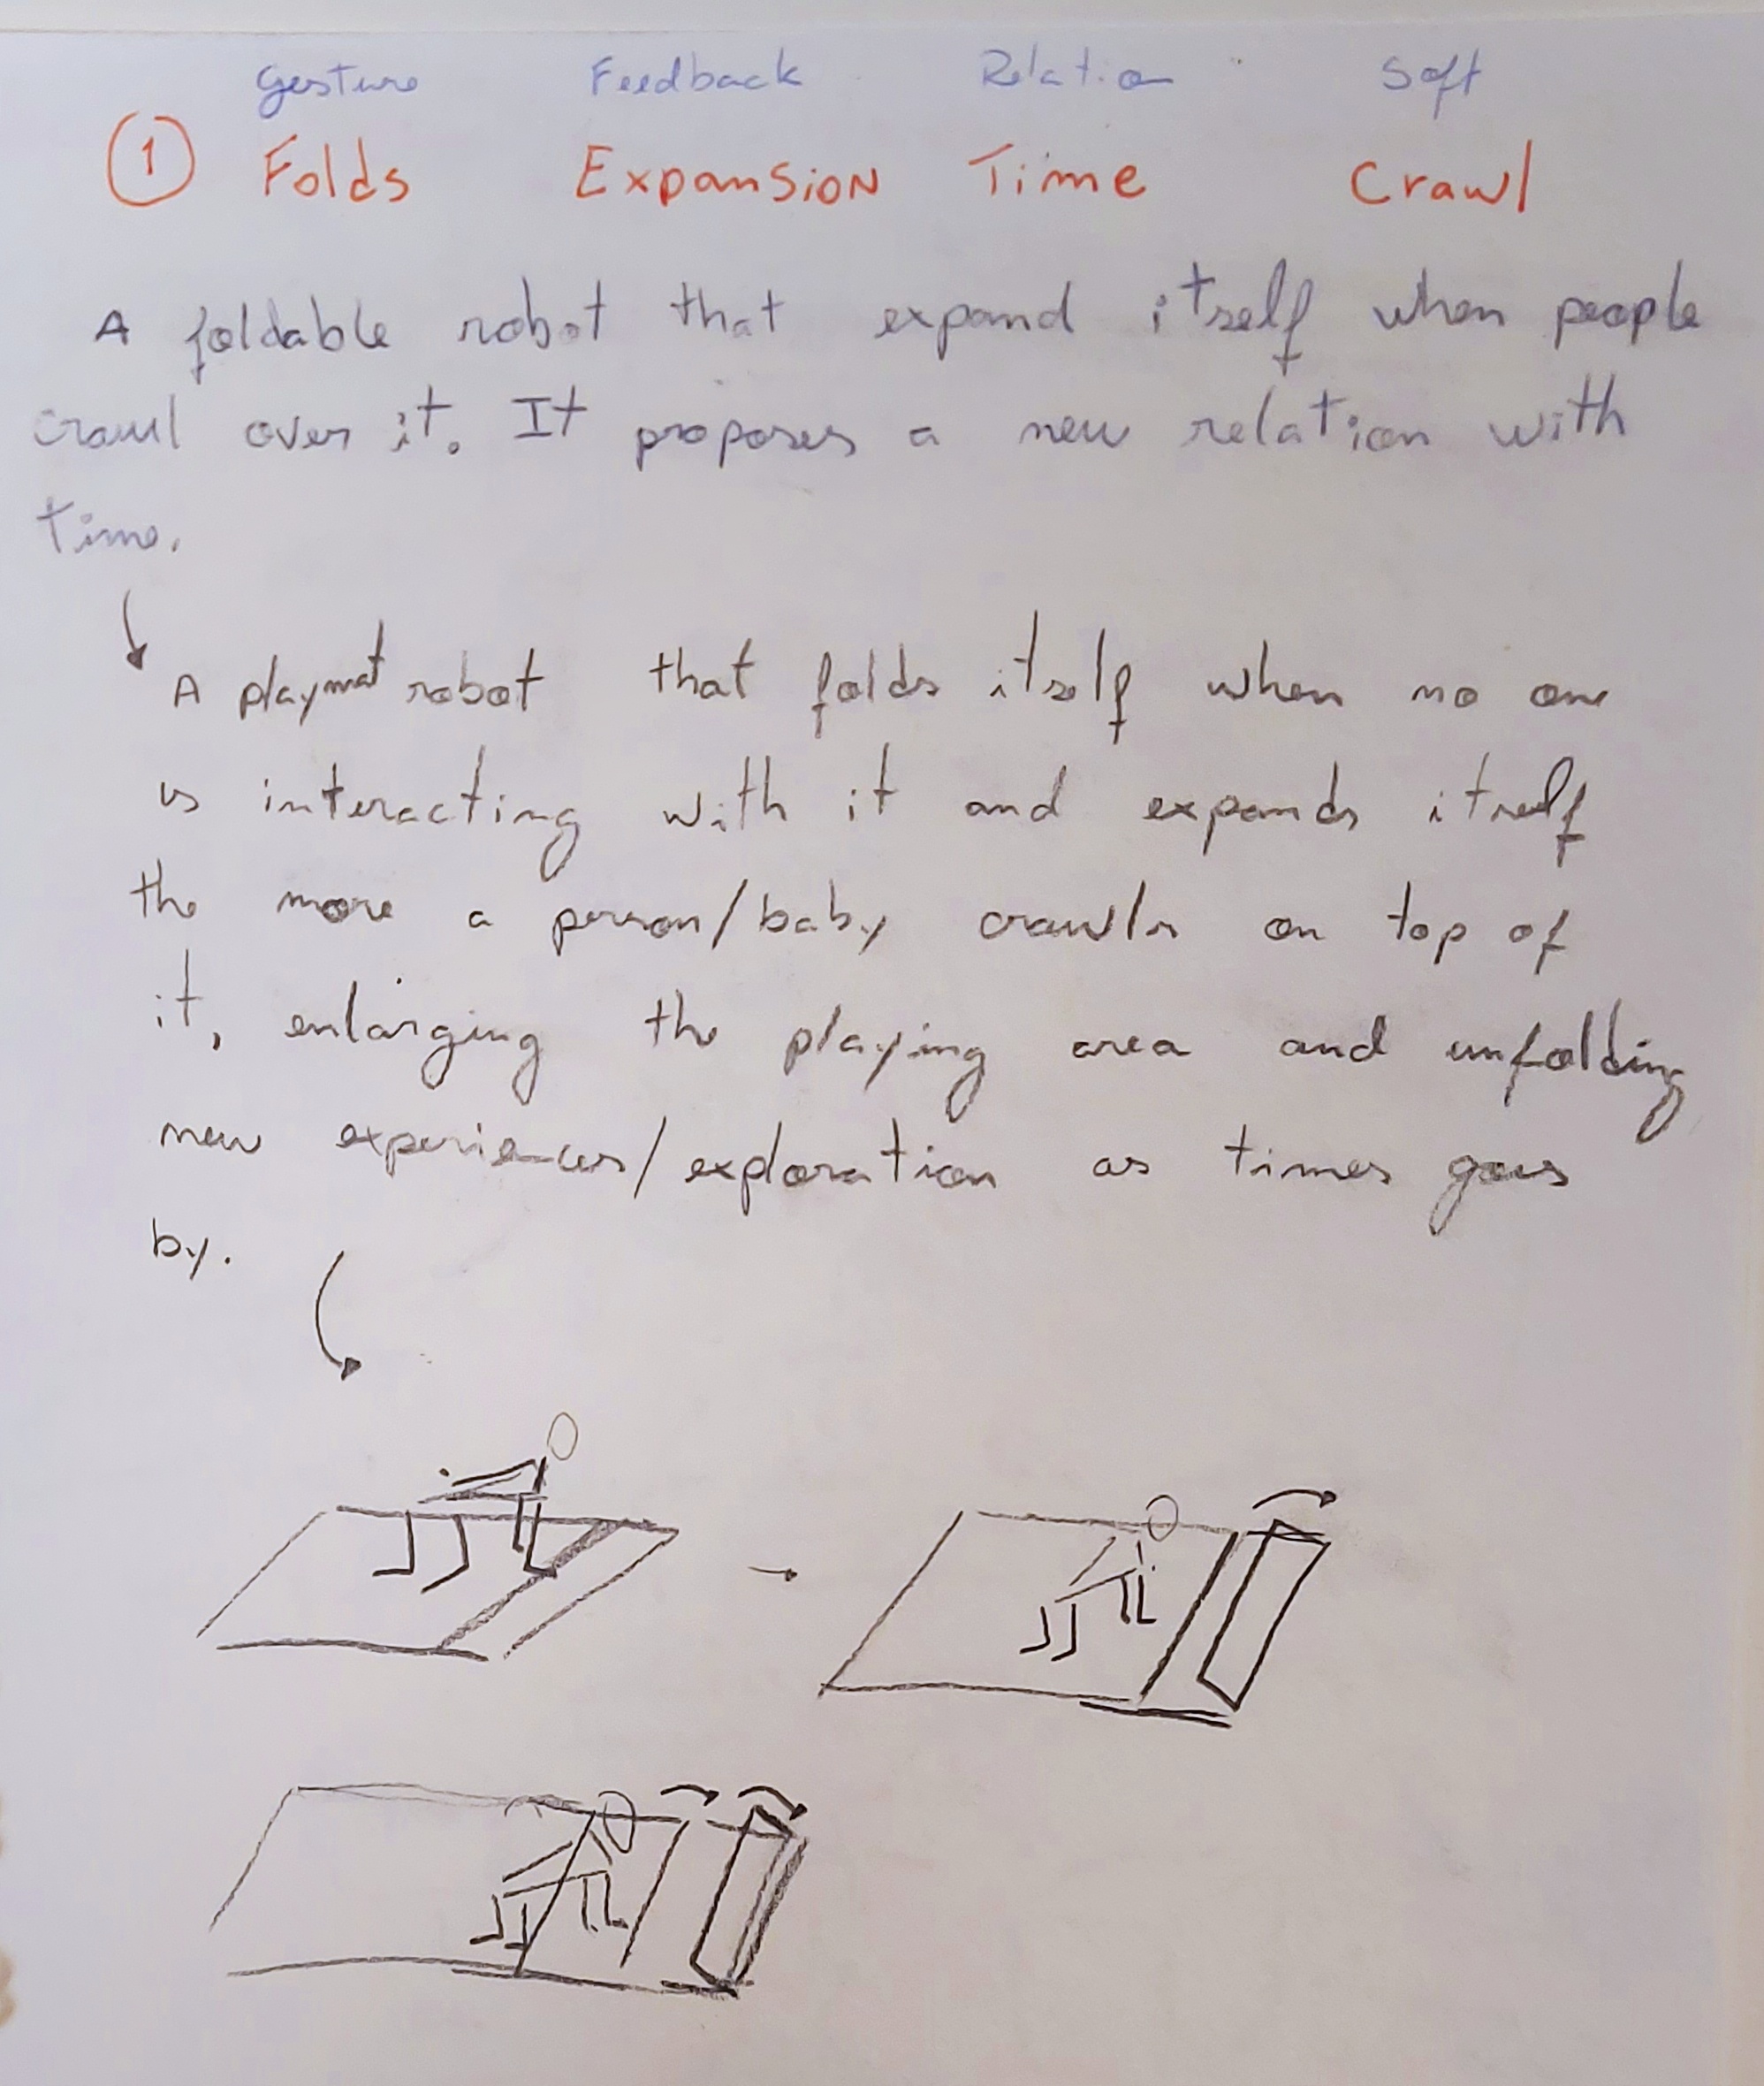 Gesture Feedback Relation Soft
1 Folds Expansion Time Crawl
A foldable robot that expand itself when people
crawl over it. It proposes a new relation with
time.
A playmat robot that folds itself when no one
is interacting with it and expands itself
the more a person/baby crawls on top of
it, enlarging the playing area and unfolding
new experiences/exploration as times goes
by.